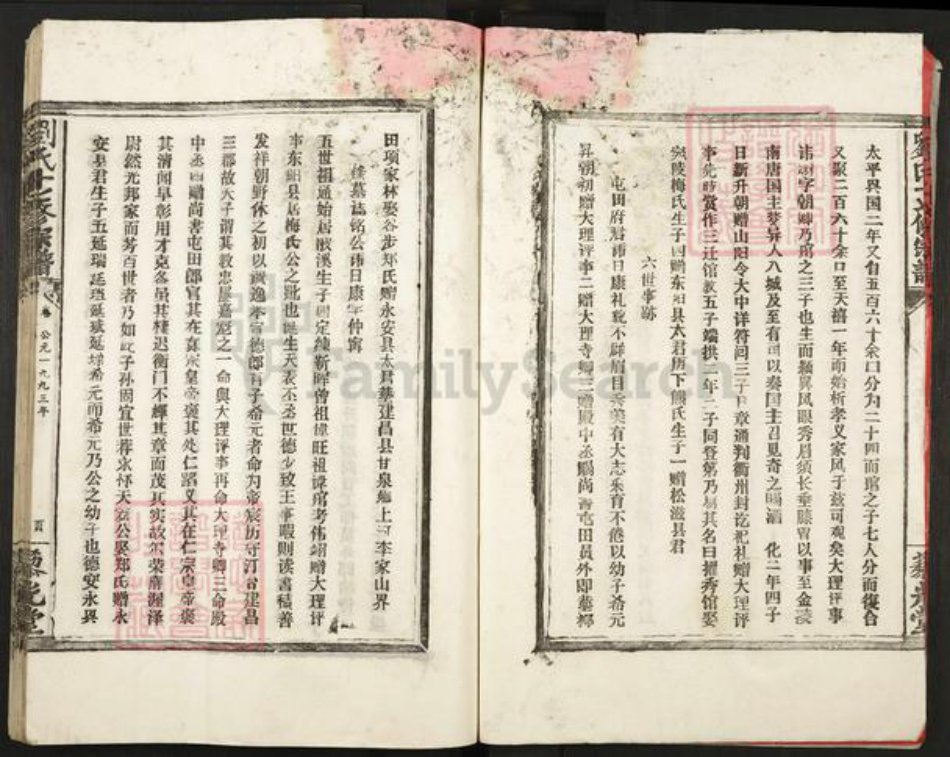 太平興国二年又自五百六十余口分为二十四而琯之子七人分而復合
又聚二百六十余口至天禧一年而始析孝义家风于兹可观矣大理评事
讳 字朝卿乃琯之三子也生而颖異凤眼秀眉须长垂膝胃以事至金凌
南唐国主梦异人八城及至有司以奏国主召見奇之赐酒 化二年四子
日新升朝赠山阳令大中详符间三子日章通判衢州封讫祀礼赠大理评
事先時赏作三迁馆教五子端拱 年二子同登第乃易其名曰擢秀馆娶
宛陵梅氏生子四赠东阳县太君历下熊氏生子一赠松滋县君
六世事跡
屯田府君讳日康礼貌不辟眉目秀美有大志乐育不倦以幼子希元
昇朝初赠大理评事二赠大理寺卿三赠殿中丞赐尚書屯田員外即墓鄉
田项家林娶谷步郑氏赠永安县太君葬建昌县甘泉鄉上 李家山界
 墓誌铭公讳日康字仲甯
五世祖通始居 溪生子 定綾新晖曾祖 旺祖諱琯考伟 赠大理评
事东阳县居梅氏公之妣也 生天表丕丞世德少致王事暇则读書稿善
发祥朝野休之初以 逸奉富德郎官子希元者命为帝宸历守汀 建昌
三郡故天子谓其教忠 嘉冠之一命與大理评事再命大理寺卿三命殿
中丞四赠尚書屯田郎官其在真宗皇帝褒其处仁 义其在仁宗皇帝褒
其清闻早彰用才克各虽其棲迟衡门不輝其章而茂其实故尔荣膺渥泽
尉然光邦家而芳百世者乃如 子孙固宜世葬求怀天 公娶郑氏赠永
安县君生子五延瑞 延斌延 希元而希元乃公之幼子也德安永興
劉氏七修宗譜
卷 公元一九九三年
頁
劉氏七修宗譜
藜光堂
藜光堂
FamilySearch